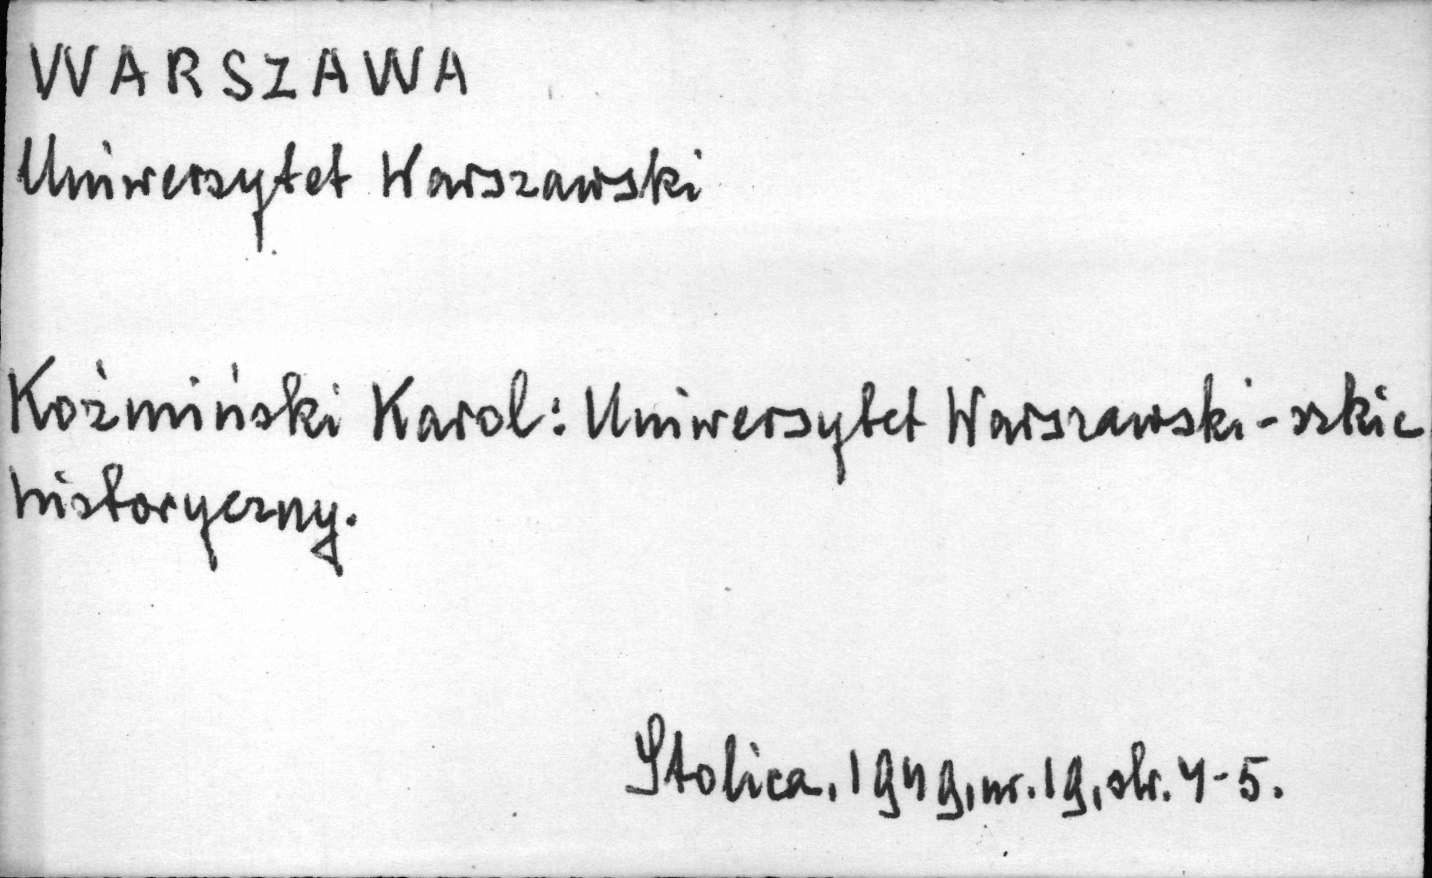 WARSZAWA
Uniwersytet Warszawski
Koźmiński Karol: Uniwersytet Warszawski - szkic
historyczny.
Stolica, 1949, nr. 19, str. 4-5.